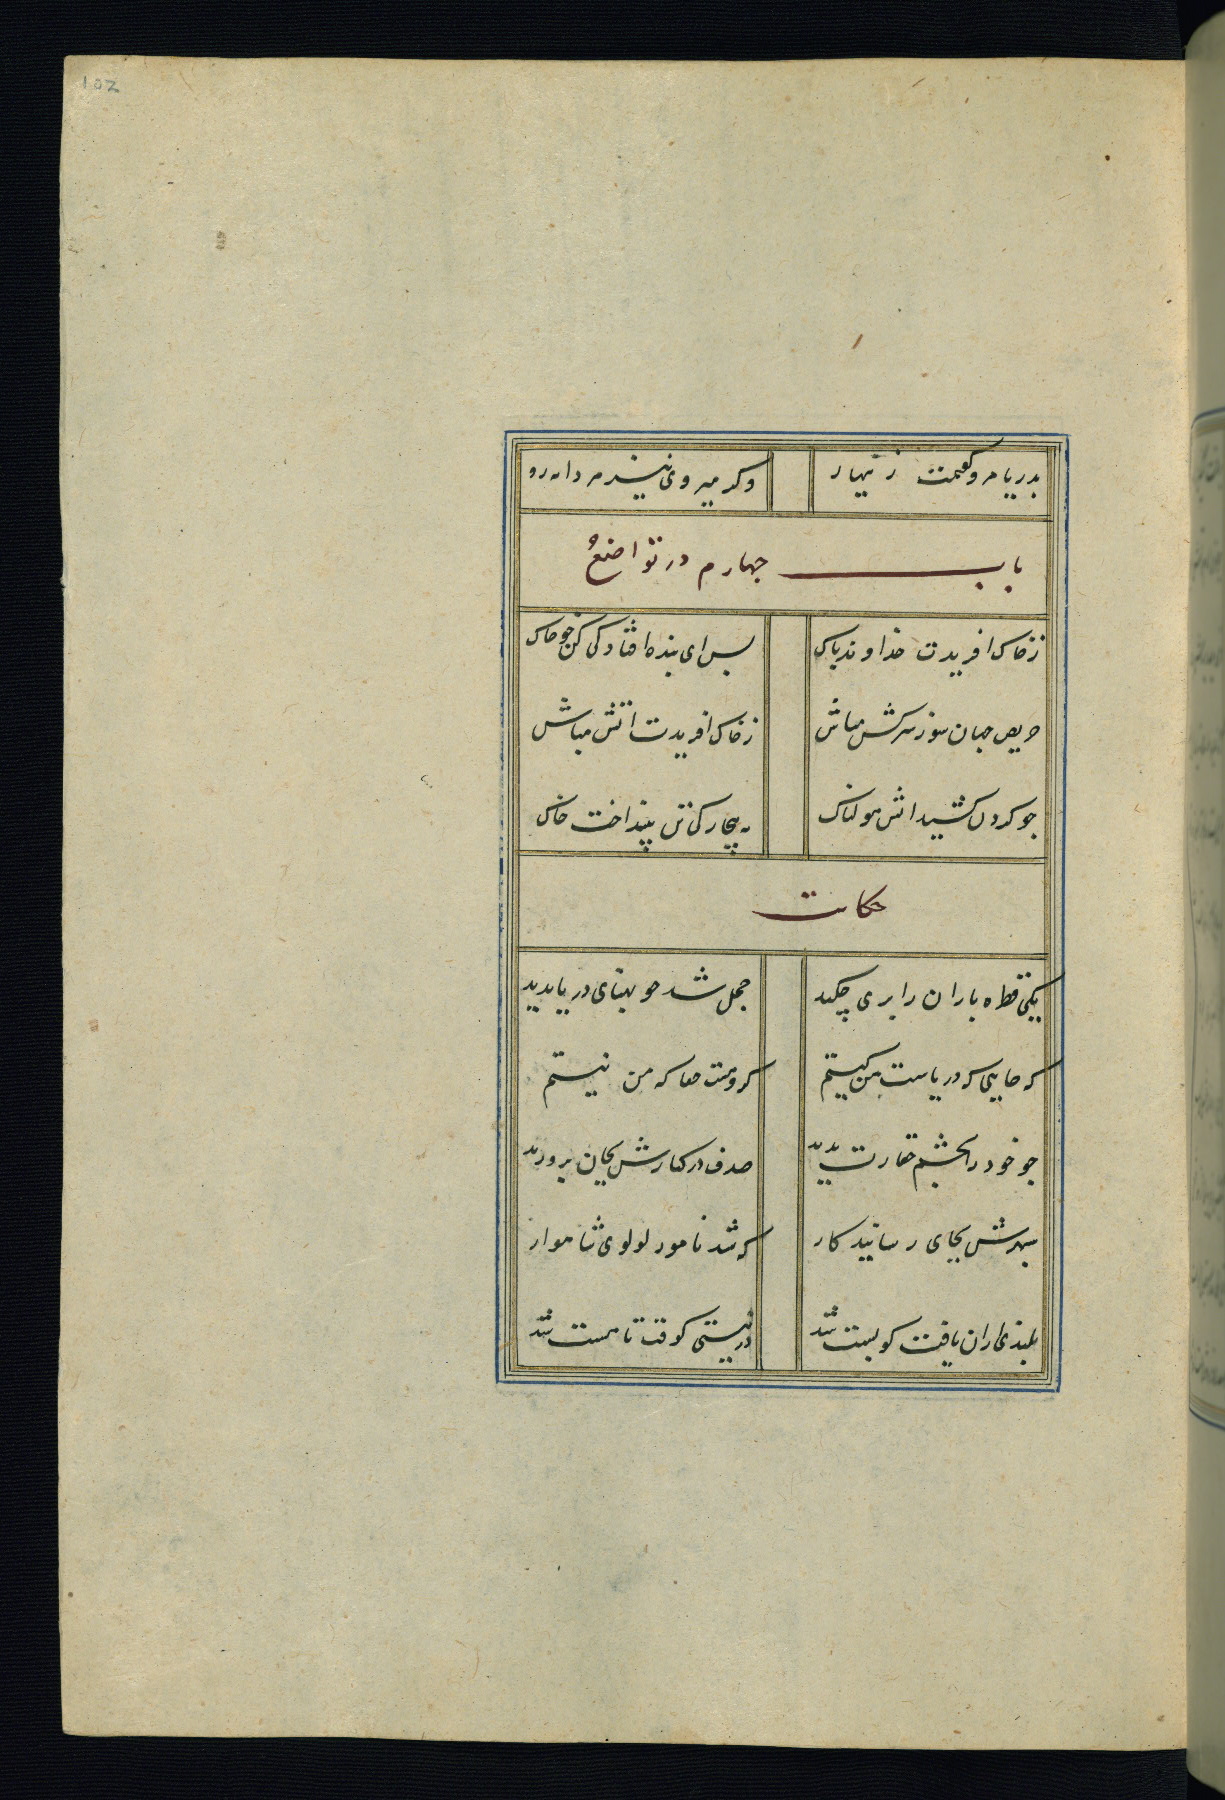 102
بدریا مرو گفتمت زینهار
وکر میروی نیز مردانه رو
باب جهارم در تواضع
زخاک افریدت خداوند پاک
پس ای بنده افتادکی کن جو خاک
حریص جهان سوز سرکش مباش
زخاک افریدت اتش مباش
جو کردن کشید اتش هولناک
به پیچارکی تن پینداخت خاک
حکایت
یکی قطره باران ز ابری چکید
خجل شد جو پهنای دریا بدید
که جایی که دریاست من کیستم
کر و هست حقا که من نیستم
جو خود را بجشم حقارت بدید
صدف در کنارش بجان پرورید
سپهرش بجای رسانید کار
که شد نامور لولوی شاهوار
بلندی ازان یافت کو پست شد
در نیستی کوفت تا هست شد